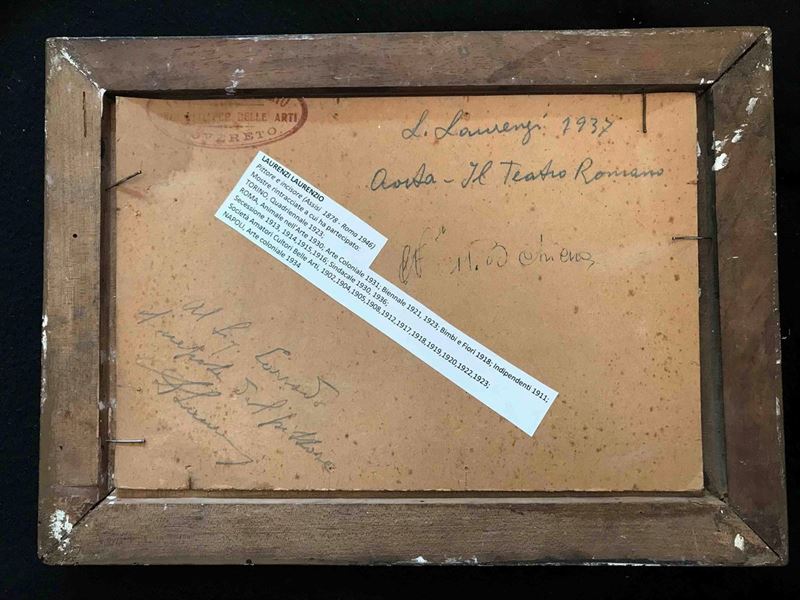 BELLE ARTI
L. Laurenzi 1937
Aosta - Il Teatro Romano
LAURENZI LAURENZIO
Pittore e incisore (Assisi 1878 - Roma 1946)
Mostre rintracciate a cui ha partecipato:
TORINO, Quadriennale 1923;
ROMA, Animale nell'Arte 1930; Arte Coloniale 1931; Biennale 1921, 1923; Bimbi e Fiori 1918; Indipendenti 1911;
Secessione 1913, 1914,1915,1916; Sindacale 1930, 1936;
Società Amatori Cultori Belle Arti, 1902,1904,1905,1908,1912,1917,1918,1919,1920,1922,1923;
NAPOLI, Arte coloniale 1934
Al Sig. Corrado